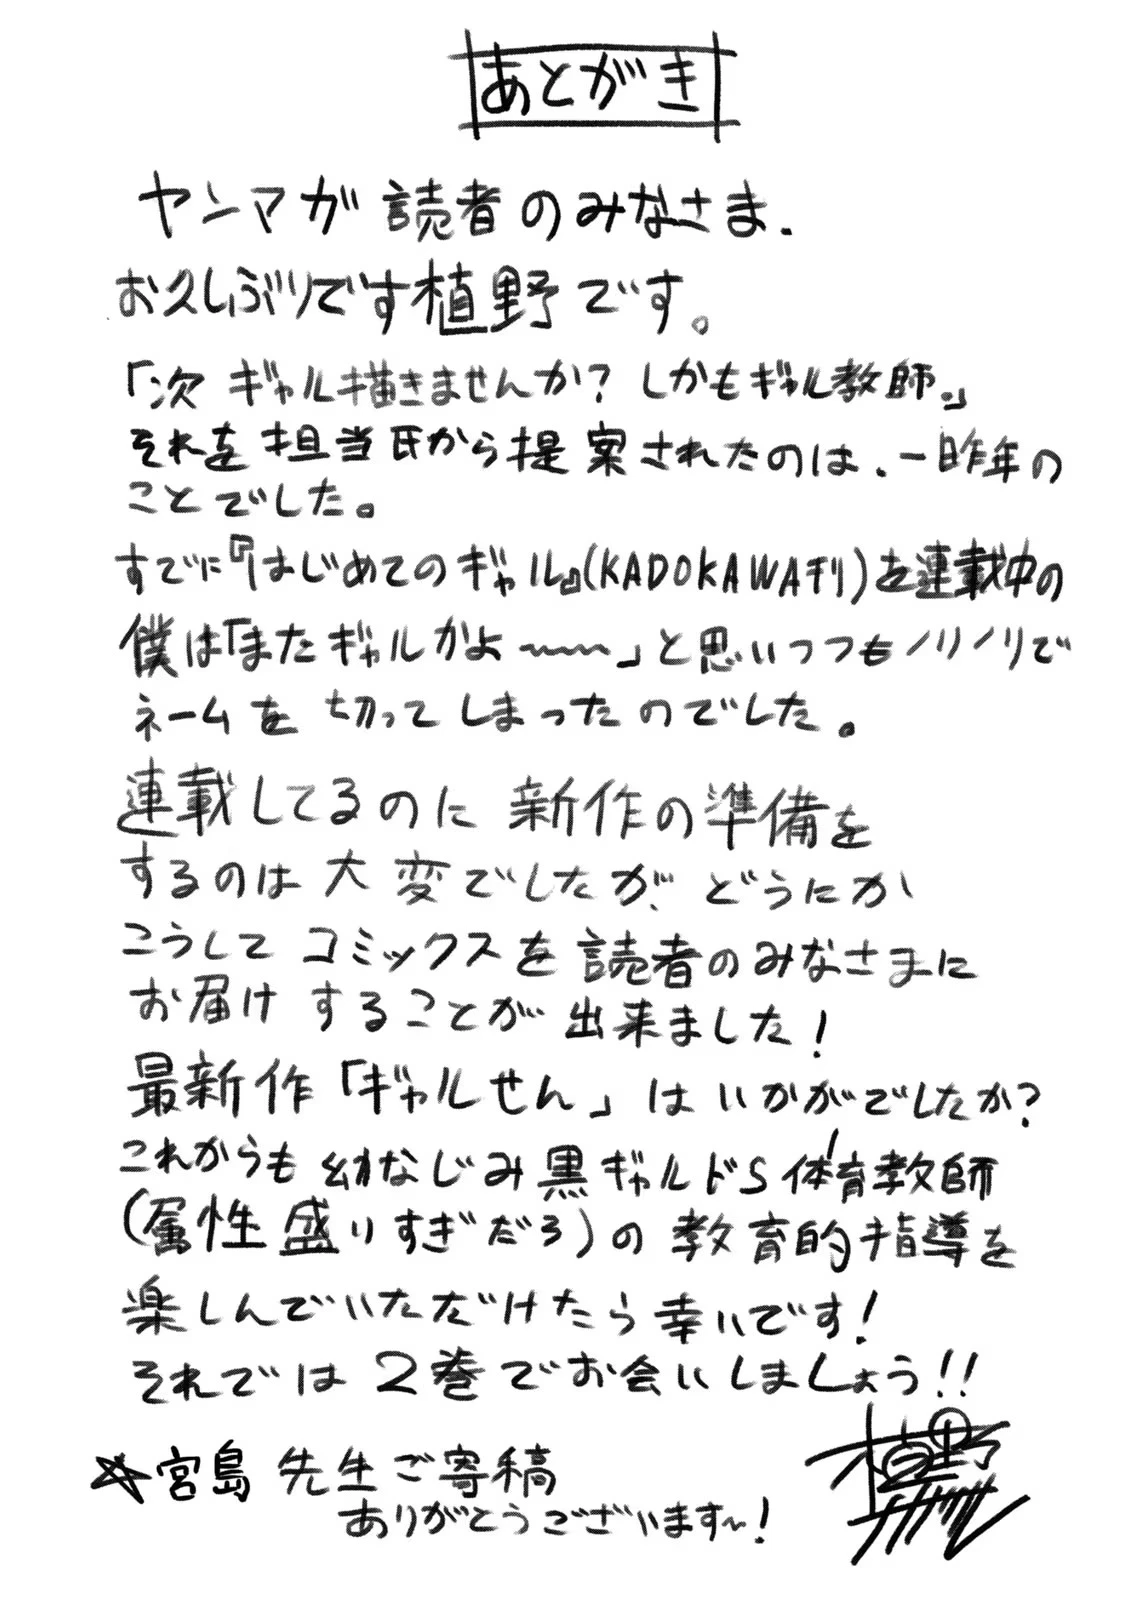 あとがき
ヤンマガ読者のみなさま、
お久しぶりです植野です。
「次ギャル描きませんか?しかもギャル教師。」
それを担当氏から提案されたのは、一昨年の
ことでした。
すでに『はじめてのギャル』(KADOKAWA刊)を連載中の
僕は「またギャルかよ〜〜〜」と思いつつもノリノリで
ネームを切ってしまったのでした。
連載してるのに新作の準備を
するのは大変でしたが、どうにか
こうしてコミックスを読者のみなさまに
お届けすることが出来ました!
最新作「ギャルせん」はいかがでしたか?
これからも幼なじみ黒ギャルドS体育教師
(属性盛りすぎだろ)の教育的指導を
楽しんでいただけたら幸いです!
それでは2巻でお会いしましょう!!
植野
☆宮島先生ご寄稿
ありがとうございます〜!